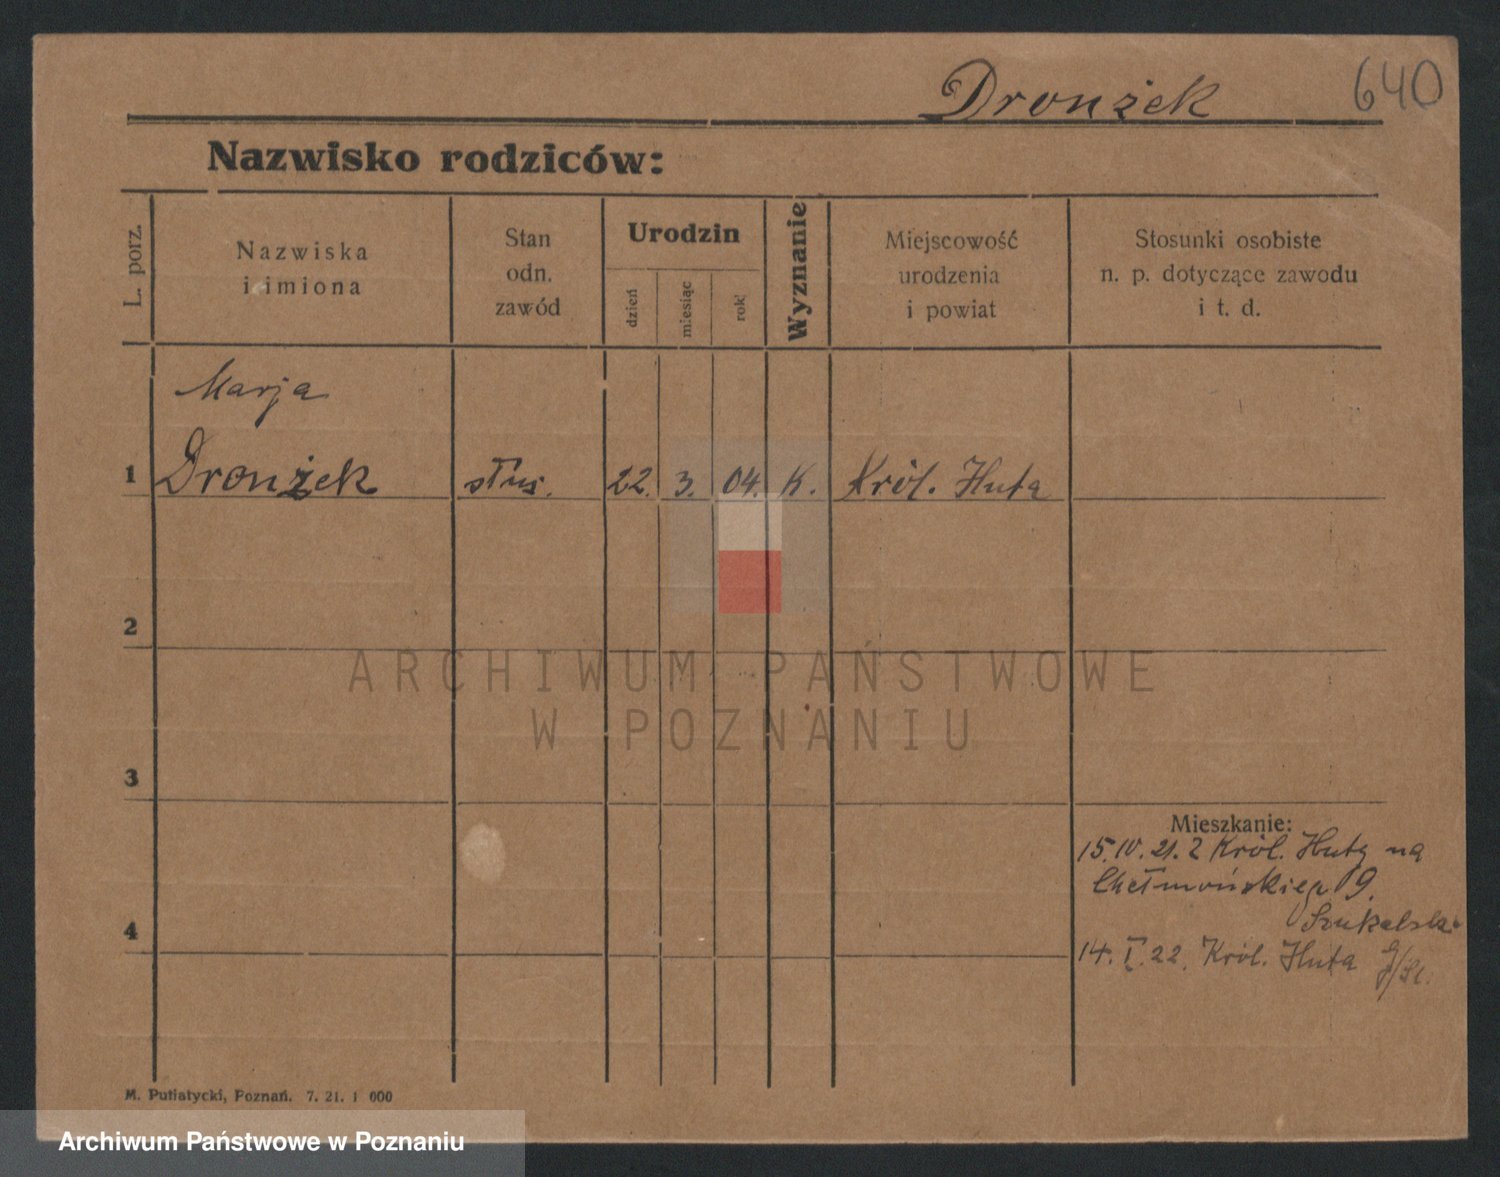 Dronżek 640
Nazwisko rodziców:
L. porz.
Nazwiska
i imiona
Stan
odn.
zawód
Urodzin
dzień
miesiąc
rok
Wyznanie
Miejscowość
urodzenia
i powiat
Stosunki osobiste
n. p. dotyczące zawodu
i t. d.
Marja
1 Dronżek służ. 22. 3. 04. K. Król. Huta
2
ARCHIWUM PAŃSTWOWE
W POZNANIU
3
Mieszkanie:
15.IV.21. z Król. Huty na
Chełmońskiego 9.
Szukalski
4
14.I.22. Król. Huta
M. Putiatycki, Poznań. 7. 21. 1 000
Archiwum Państwowe w Poznaniu